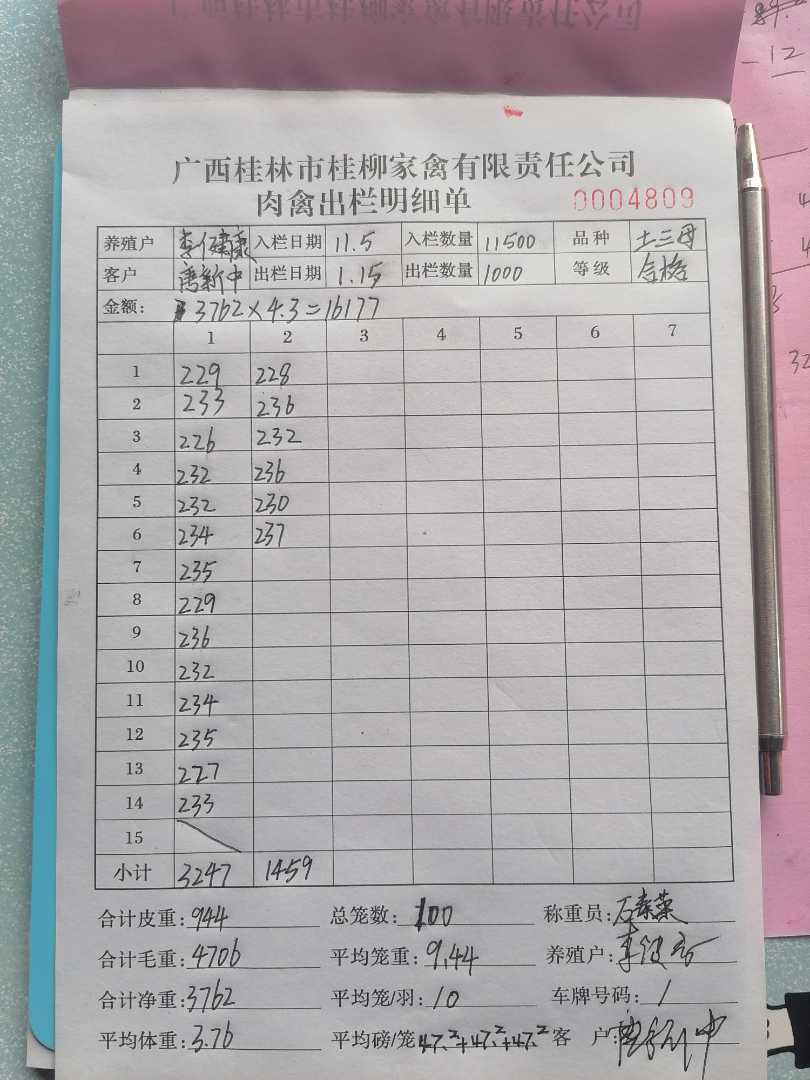 广西桂林市桂柳家禽有限责任公司
肉禽出栏明细单 0004809
养殖户 李健康 入栏日期 11.5 入栏数量 11500 品种 土三母
客户 唐新中 出栏日期 1.15 出栏数量 1000 等级 合格
金额: 3762×4.3=16177
1 2 3 4 5 6 7
1 229 228
2 233 236
3 226 232
4 232 236
5 232 230
6 234 237
7 235
8 229
9 236
10 232
11 234
12 235
13 227
14 233
15
小计 3247 1459
合计皮重: 944 总笼数: 100 称重员:
合计毛重: 4706 平均笼重: 9.44 养殖户:
合计净重: 3762 平均笼/羽: 10 车牌号码: /
平均体重: 3.76 平均磅/笼 47.²+47.²+47.² 客 户: